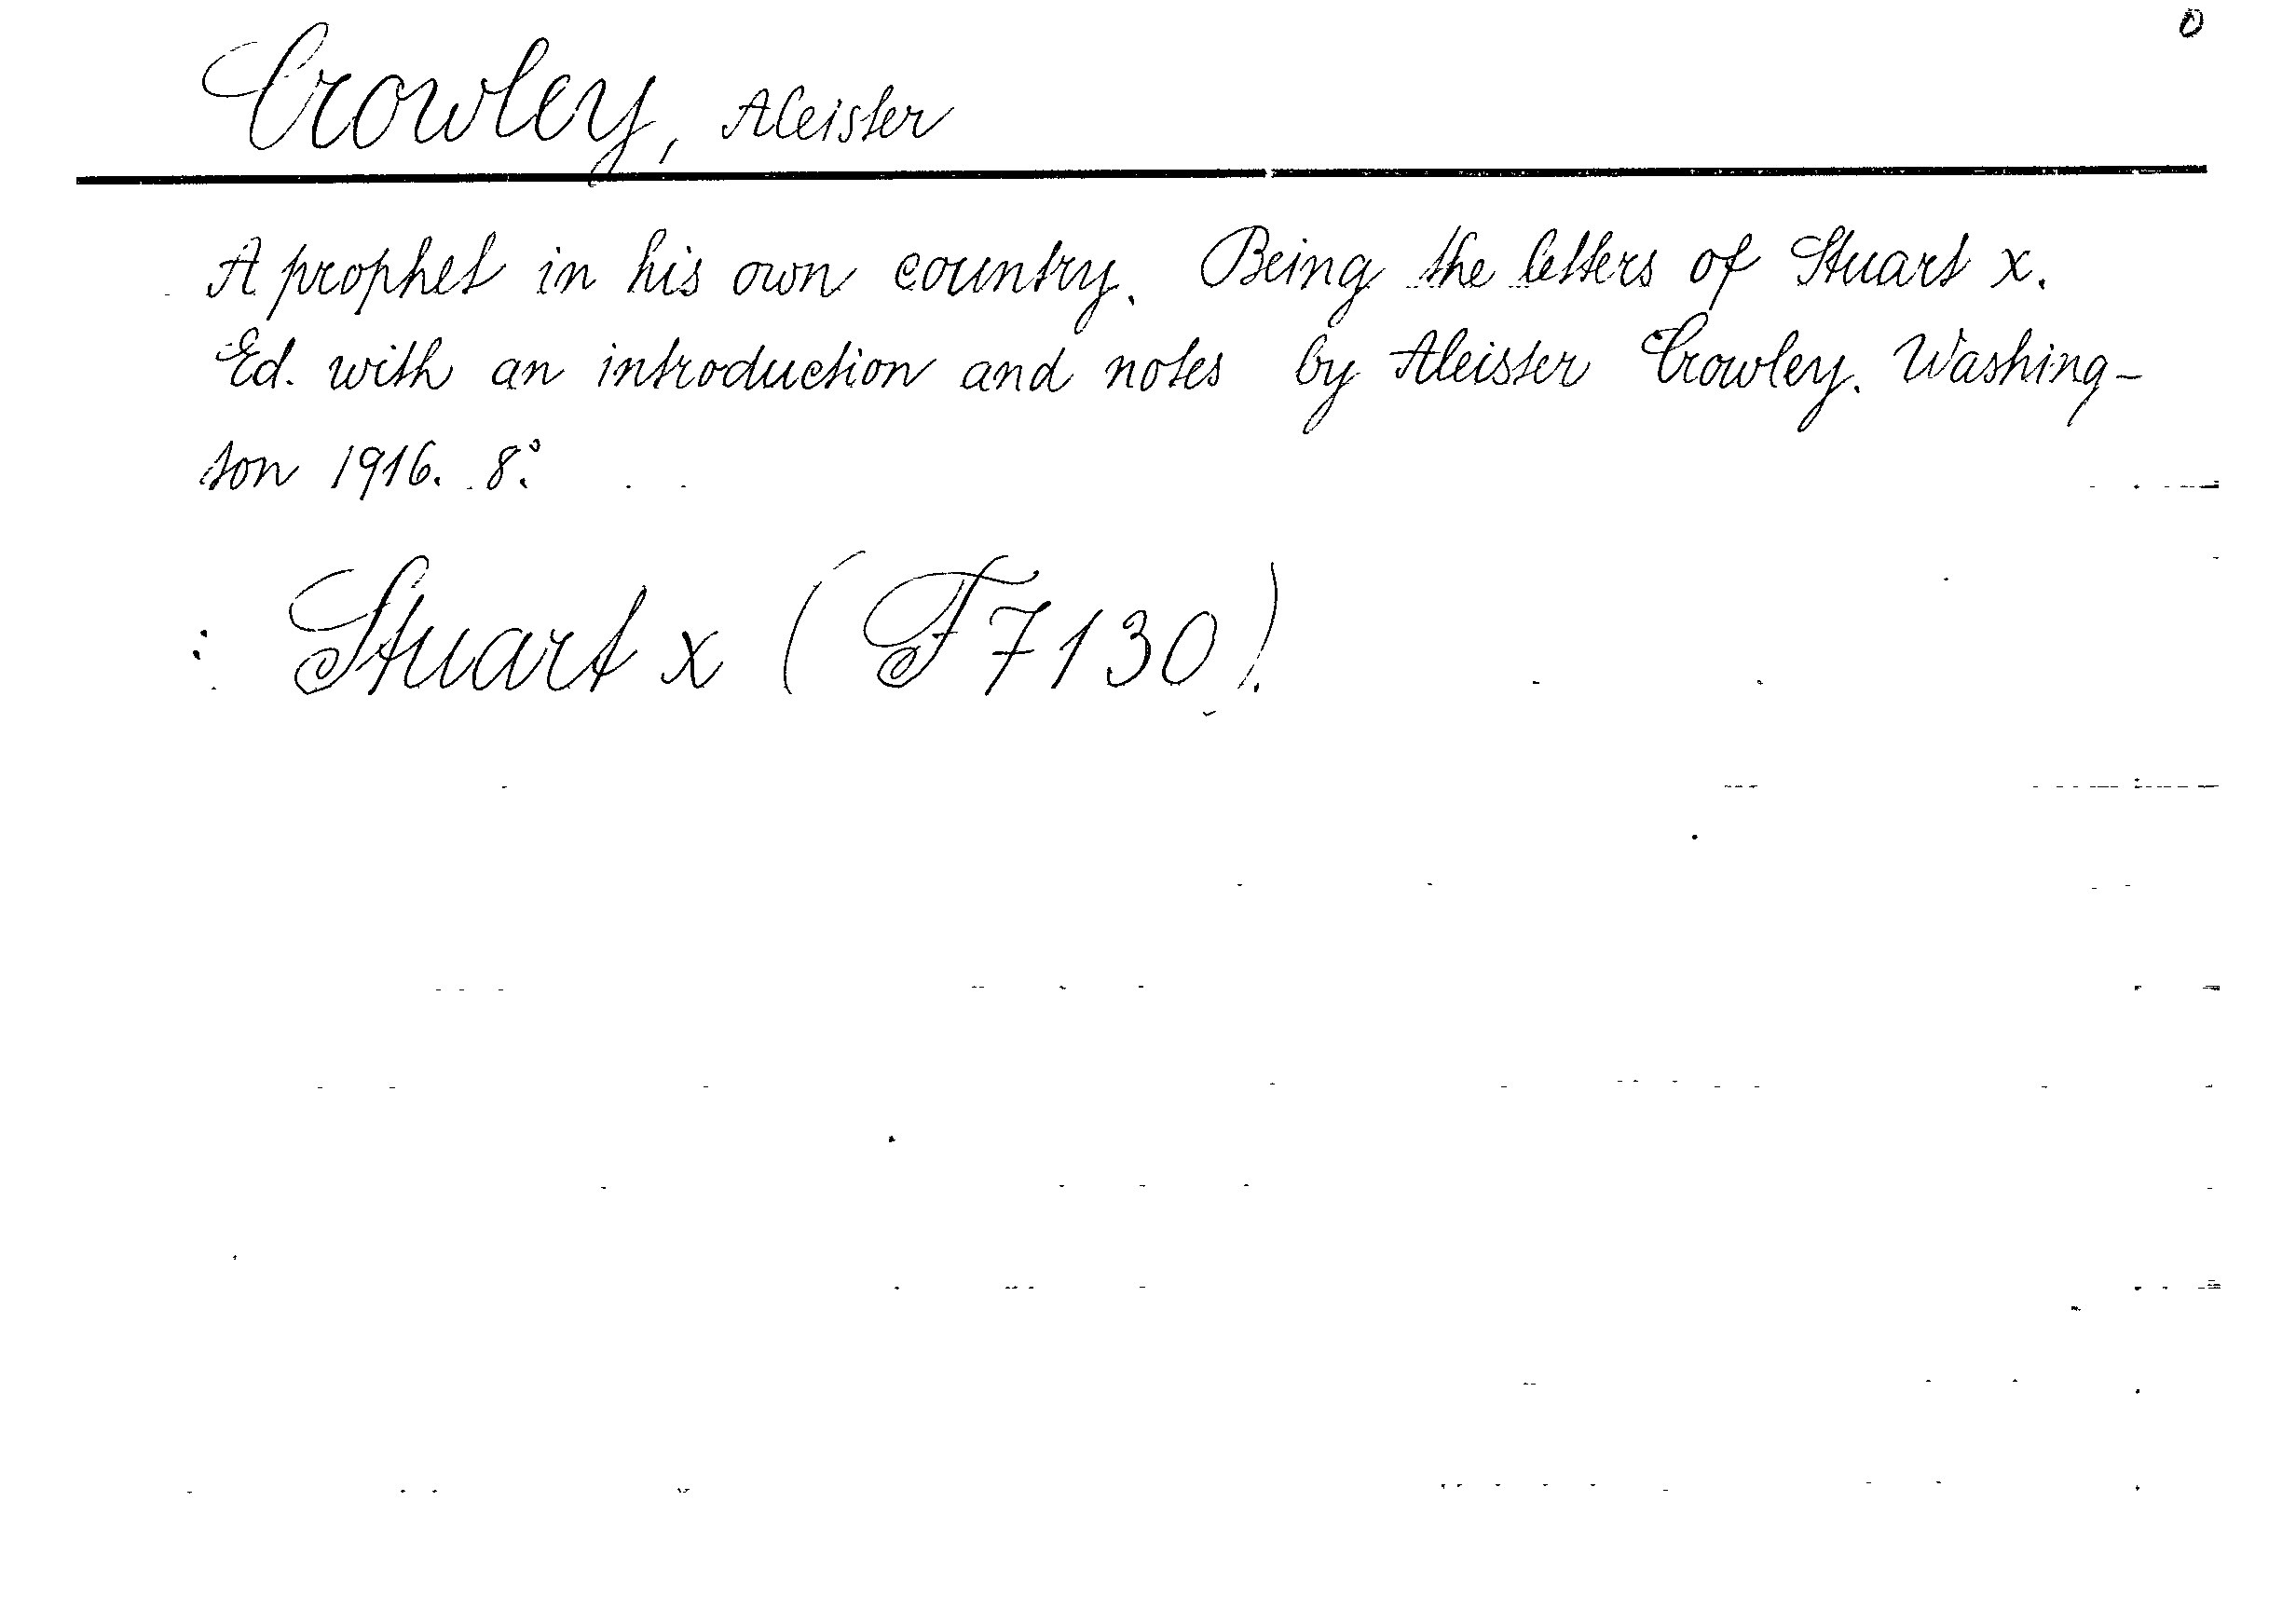 0
Crowley, Aleister
A prophet in his own country. Being the letters of Stuart x.
Ed. with an introduction and notes by Aleister Crowley. Washing-
ton 1916. 8°.
: Stuart x (F7130).